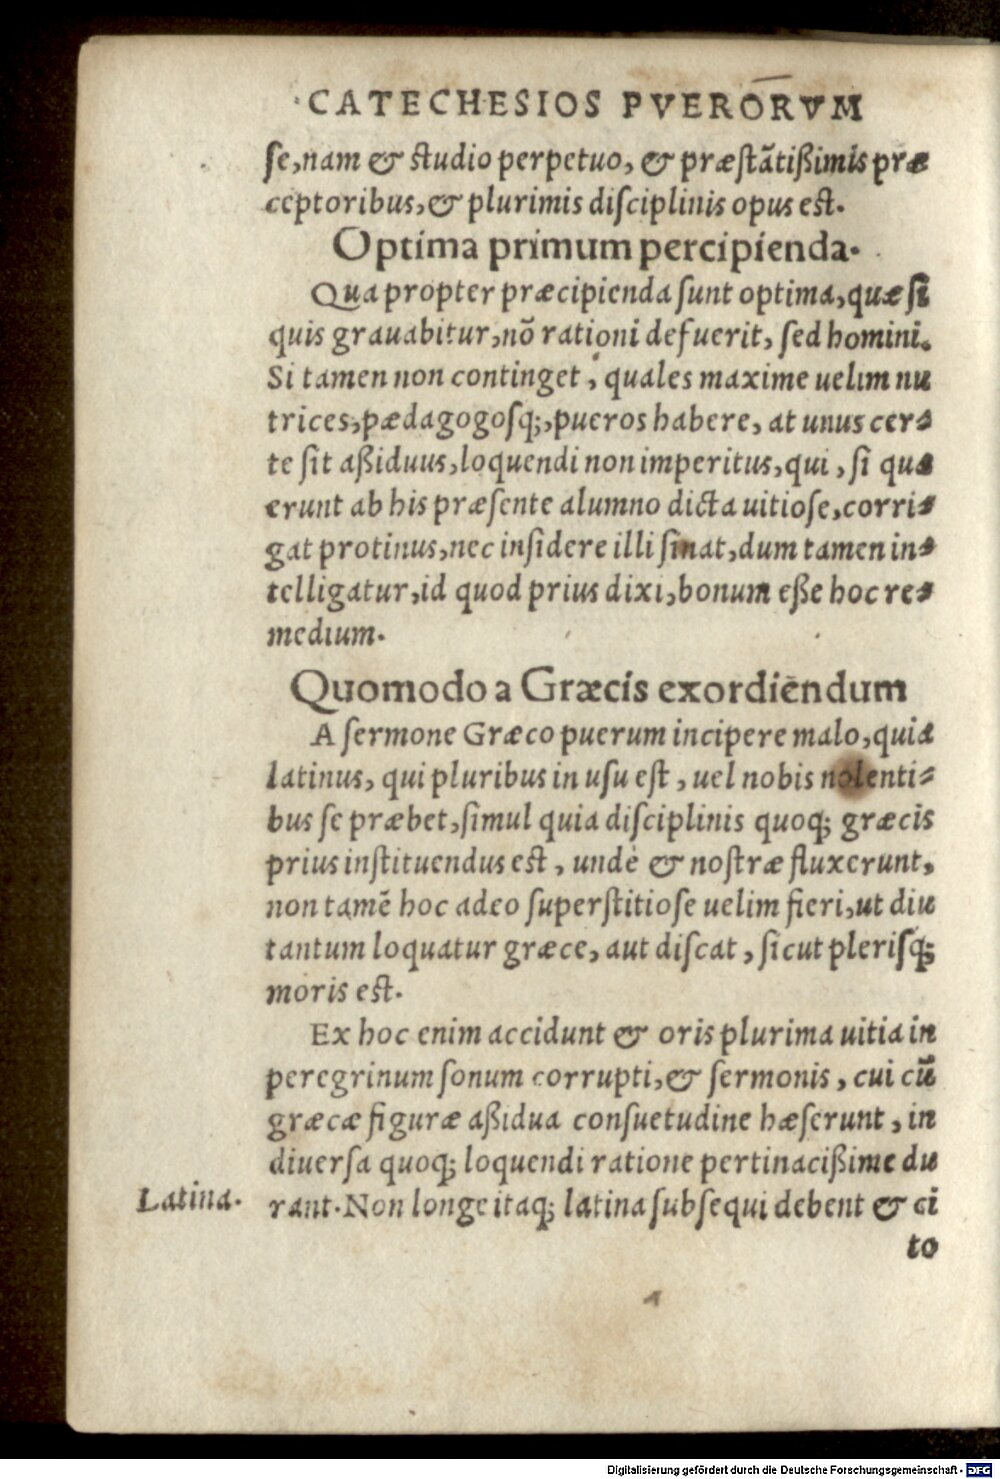 CATECHESIOS PVERORVM
ſe,nam & ſtudio perpetuo, & præſtãtißimis præ
ceptoribus,& plurimis diſciplinis opus eſt.
Optima primum percipienda.
Quapropter præcipienda ſunt optima,quæ ſi
quis grauabitur,nõ rationi defuerit, ſed homini.
Si tamen non continget, quales maxime uelim nu
trices,pædagogosq́;,pueros habere, at unus cer⸗
te ſit aßiduus,loquendi non imperitus,qui, ſi qua
erunt ab his præſente alumno dicta uitioſe,corri⸗
gat protinus,nec inſidere illi ſinat,dum tamen in⸗
telligatur,id quod prius dixi,bonum eße hoc re⸗
medium.
Quomodo a Græcis exordiēndum
A ſermone Græco puerum incipere malo,quia
latinus, qui pluribus in uſu eſt, uel nobis nolenti⸗
bus ſe præbet,ſimul quia diſciplinis quoq; græcis
prius inſtituendus eſt, unde & noſtræ fluxerunt,
non tamẽ hoc adeo ſuperſtitioſe uelim fieri,ut diu
tantum loquatur græce, aut diſcat, ſicut plerisq;
moris eſt.
Ex hoc enim accidunt & oris plurima uitia in
peregrinum ſonum corrupti,& ſermonis, cui cũ
græcæ figuræ aßidua conſuetudine hæſerunt, in
diuerſa quoq; loquendi ratione pertinacißime du
Latina. rant. Non longe itaq; latina ſubſequi debent & ci
to
Digitalisierung gefördert durch die Deutsche Forschungsgemeinschaft - DFG